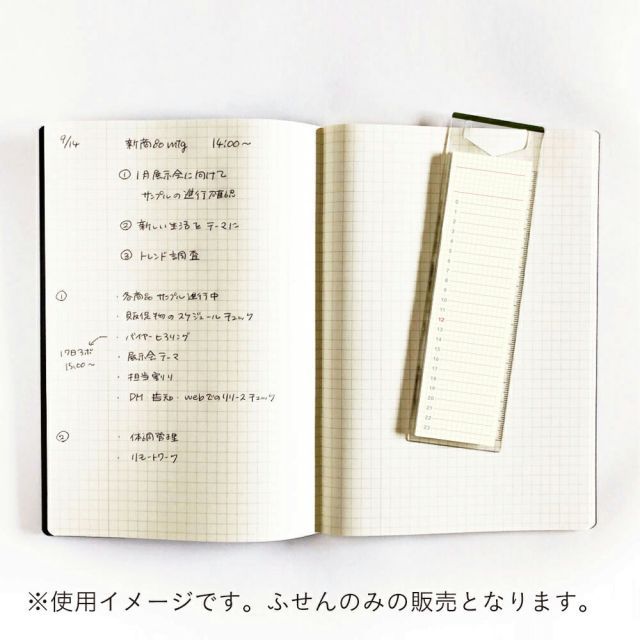 9/14 新商品mtg 14:00〜
① 1月展示会に向けて
サンプルの進行確認
② 新しい生活をテーマに
③ トレンド調査
① ・各商品サンプル進行中
・販促物のスケジュールチェック
・バイヤーヒアリング
17日
15:00〜
・展示会テーマ
・担当割り
・DM 告知・webでのリリースチェック
② ・体調管理
・リモートワーク
0
1
2
3
4
5
6
7
8
9
10
11
12
13
14
15
16
17
18
19
20
21
22
23
※使用イメージです。ふせんのみの販売となります。